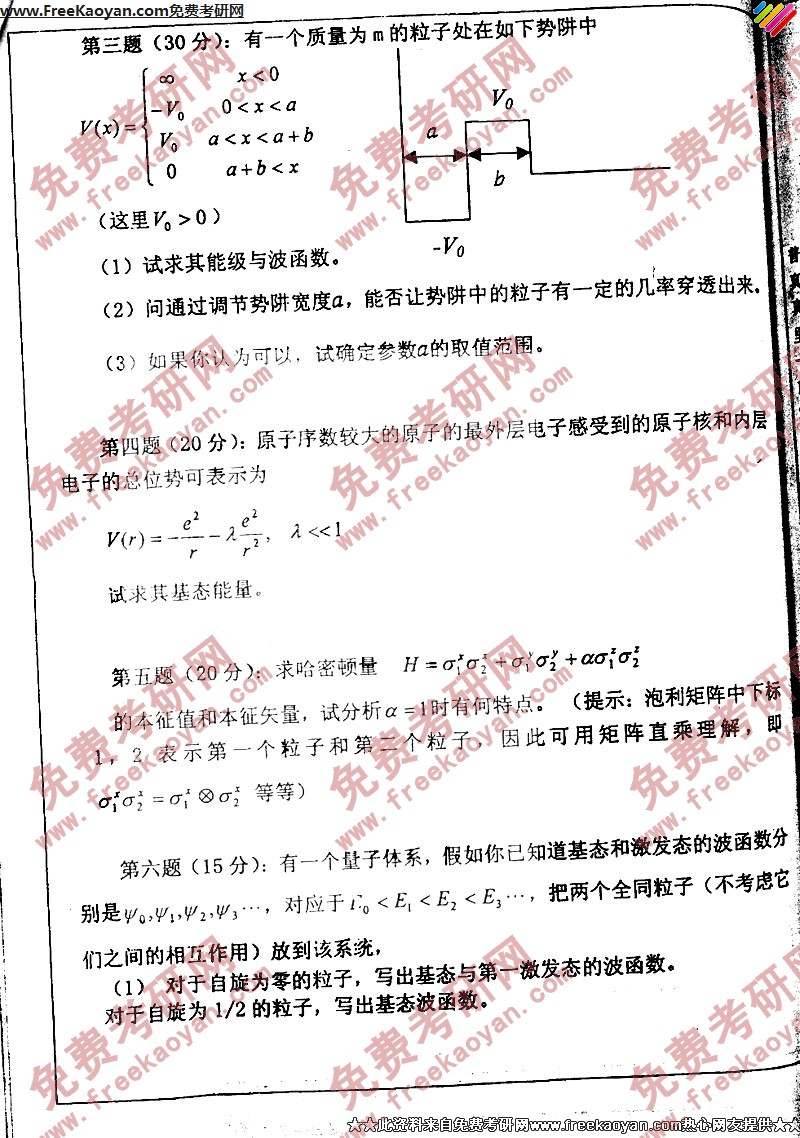 www.FreeKaoyan.com免费考研网
第三题（30分）：有一个质量为m的粒子处在如下势阱中
V(x)={
∞ x<0
-V₀ 0<x<a
V₀ a<x<a+b
0 a+b<x
V₀
a
b
-V₀
（这里V₀>0）
（1）试求其能级与波函数。
（2）问通过调节势阱宽度a，能否让势阱中的粒子有一定的几率穿透出来。
（3）如果你认为可以，试确定参数a的取值范围。
第四题（20分）：原子序数较大的原子的最外层电子感受到的原子核和内层
电子的总位势可表示为
V(r)=-e²/r-λe²/r², λ<<1
试求其基态能量。
第五题（20分）：求哈密顿量 H=σ₁ˣσ₂ˣ+σ₁ʸσ₂ʸ+ασ₁ᶻσ₂ᶻ
的本征值和本征矢量，试分析α=1时有何特点。（提示：泡利矩阵中下标
1，2 表示第一个粒子和第二个粒子，因此可用矩阵直乘理解，即
σ₁ˣσ₂ˣ=σ₁ˣ⊗σ₂ˣ 等等）
第六题（15分）：有一个量子体系，假如你已知道基态和激发态的波函数分
别是ψ₀,ψ₁,ψ₂,ψ₃…，对应于E₀<E₁<E₂<E₃…，把两个全同粒子（不考虑它
们之间的相互作用）放到该系统，
（1） 对于自旋为零的粒子，写出基态与第一激发态的波函数。
对于自旋为1/2的粒子，写出基态波函数。
免费考研网
www.freekaoyan.com
★★此资料来自免费考研网www.freekaoyan.com热心网友提供★★